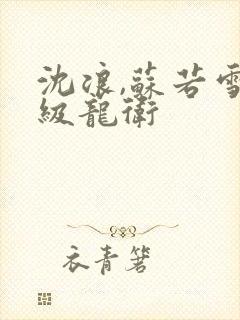 沈浪,蘇若雪
級龍衛
衣青箬